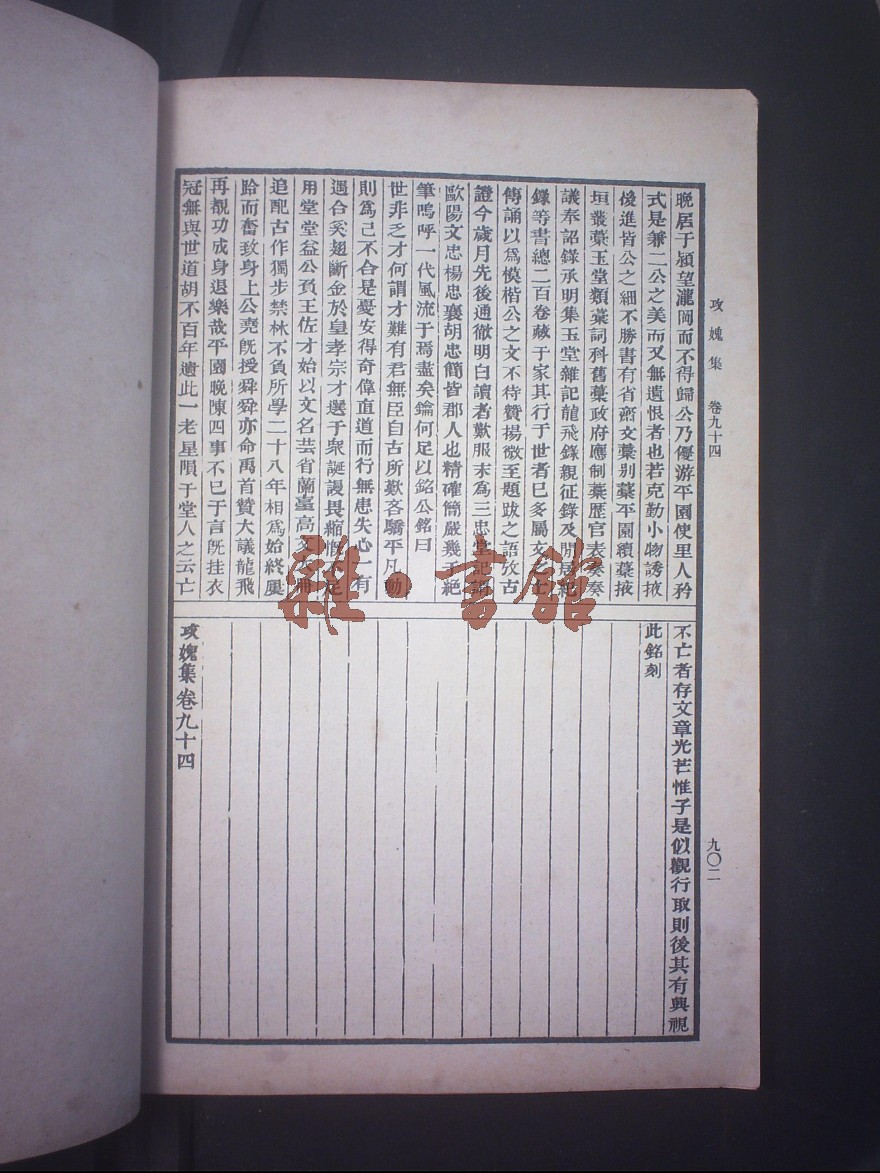 攻媿集 卷九十四
九〇二
晚居于潁望瀧岡而不得歸公乃優游平園使里人矜
式是兼二公之美而又無遺恨者也若克勤小物誘掖
後進皆公之細不勝書有省齋文藁别藁平園續藁掖
垣叢藁玉堂類藁詞科舊藁政府應制藁歷官表奏奏
議奉詔錄承明集玉堂雜記龍飛錄親征錄及閒居
錄等書總二百卷藏于家其行于世者已多屬文之士
傳誦以爲模楷公之文不待贊揚微至題跋之語攷古
證今歲月先後通徹明白讀者歎服末為三忠堂記謂
歐陽文忠楊忠襄胡忠簡皆郡人也精確簡嚴幾于絕
筆嗚呼一代風流于焉盡矣鑰何足以銘公銘曰
世非乏才何謂才難有君無臣自古所歎吝驕平凡動
則爲己不合是憂安得奇偉直道而行無患失心一有
遇合奚翅斷金於皇孝宗才選于衆誕謾畏縮慨足
用堂堂益公負王佐才始以文名芸省蘭臺高文冊
追配古作獨步禁林不負所學二十八年相爲始終屢
跲而奮致身上公堯旣授舜舜亦命禹首贊大議龍飛
再覩功成身退樂哉平園晚陳四事不已于言旣挂衣
冠無與世道胡不百年遺此一老星隕于堂人之云亡
不亡者存文章光芒惟子是似觀行取則後其有興視
此銘刻
攻媿集卷九十四
雜·書館